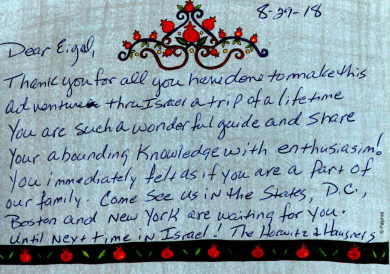 8-29-18
Dear Eigal,
Thank you for all you have done to make this
adventure thru Israel a trip of a lifetime
You are such a wonderful guide and share
your abounding knowledge with enthusiasim!
You immediately felt as if you are a part of
our family. Come see us in the States, D.C.,
Boston and New York are waiting for you.
Until next time in Israel! The Horwitz & Hausners